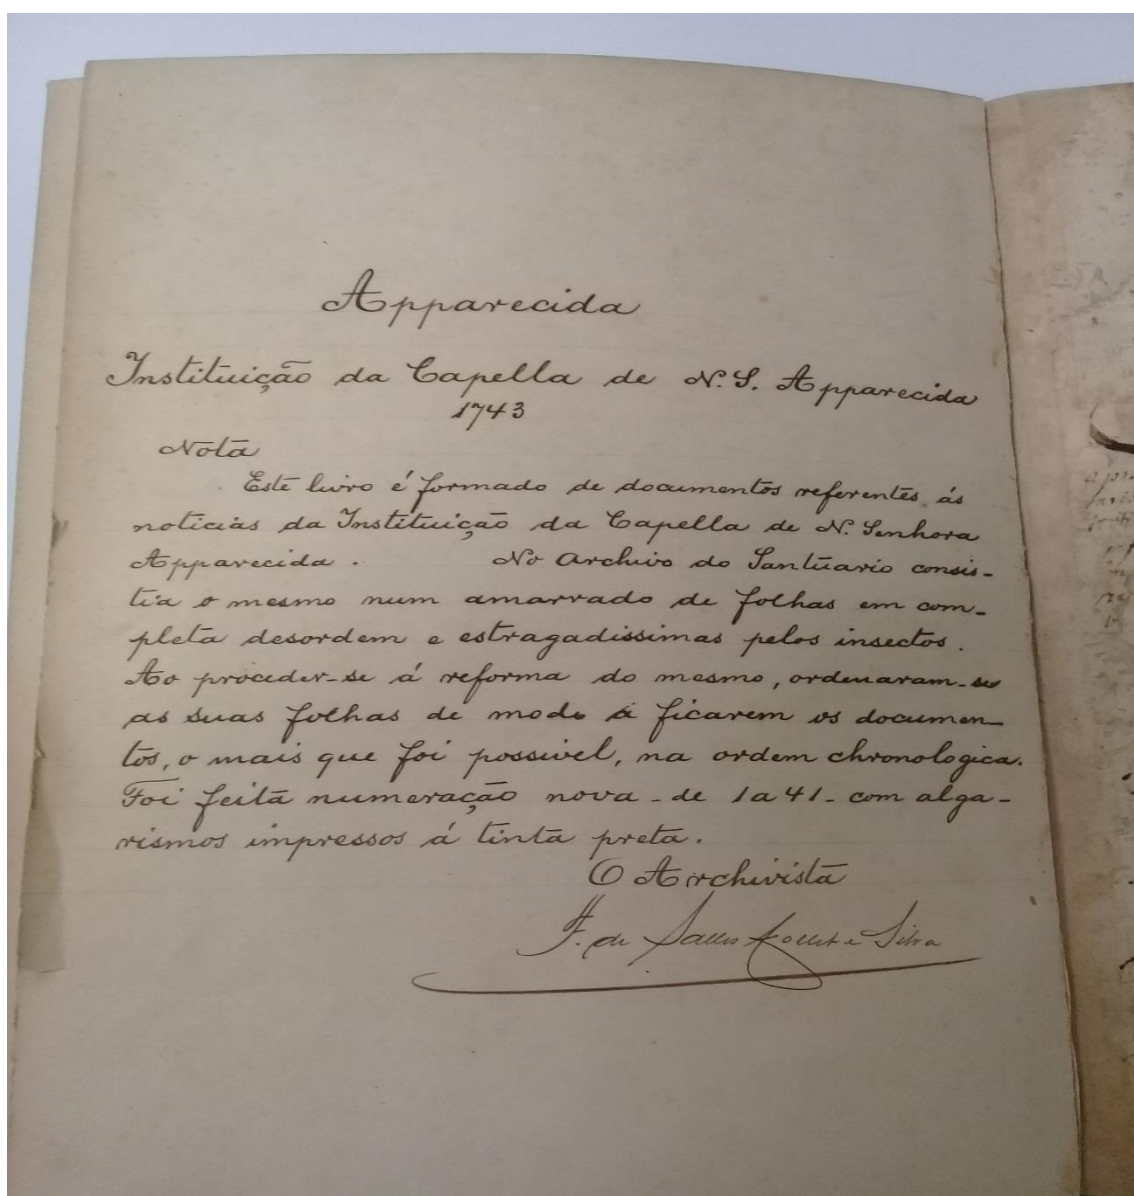 Apparecida
Instituição da Capella de N. S. Apparecida
1743
Nota
Este livro é formado de documentos referentes ás
noticias da Instituição da Capella de N. Senhora
Apparecida. No Archivo do Santuario consis-
tia o mesmo num amarrado de folhas em com-
pleta desordem e estragadissimas pelos insectos.
Ao proceder-se á reforma do mesmo, ordenaram-se
as suas folhas de modo a ficarem os documen-
tos, o mais que foi possivel, na ordem chronologica.
Foi feita numeração nova - de 1 a 41 - com alga-
rismos impressos á tinta preta.
O Archivista
F. de Salles Collet e Silva